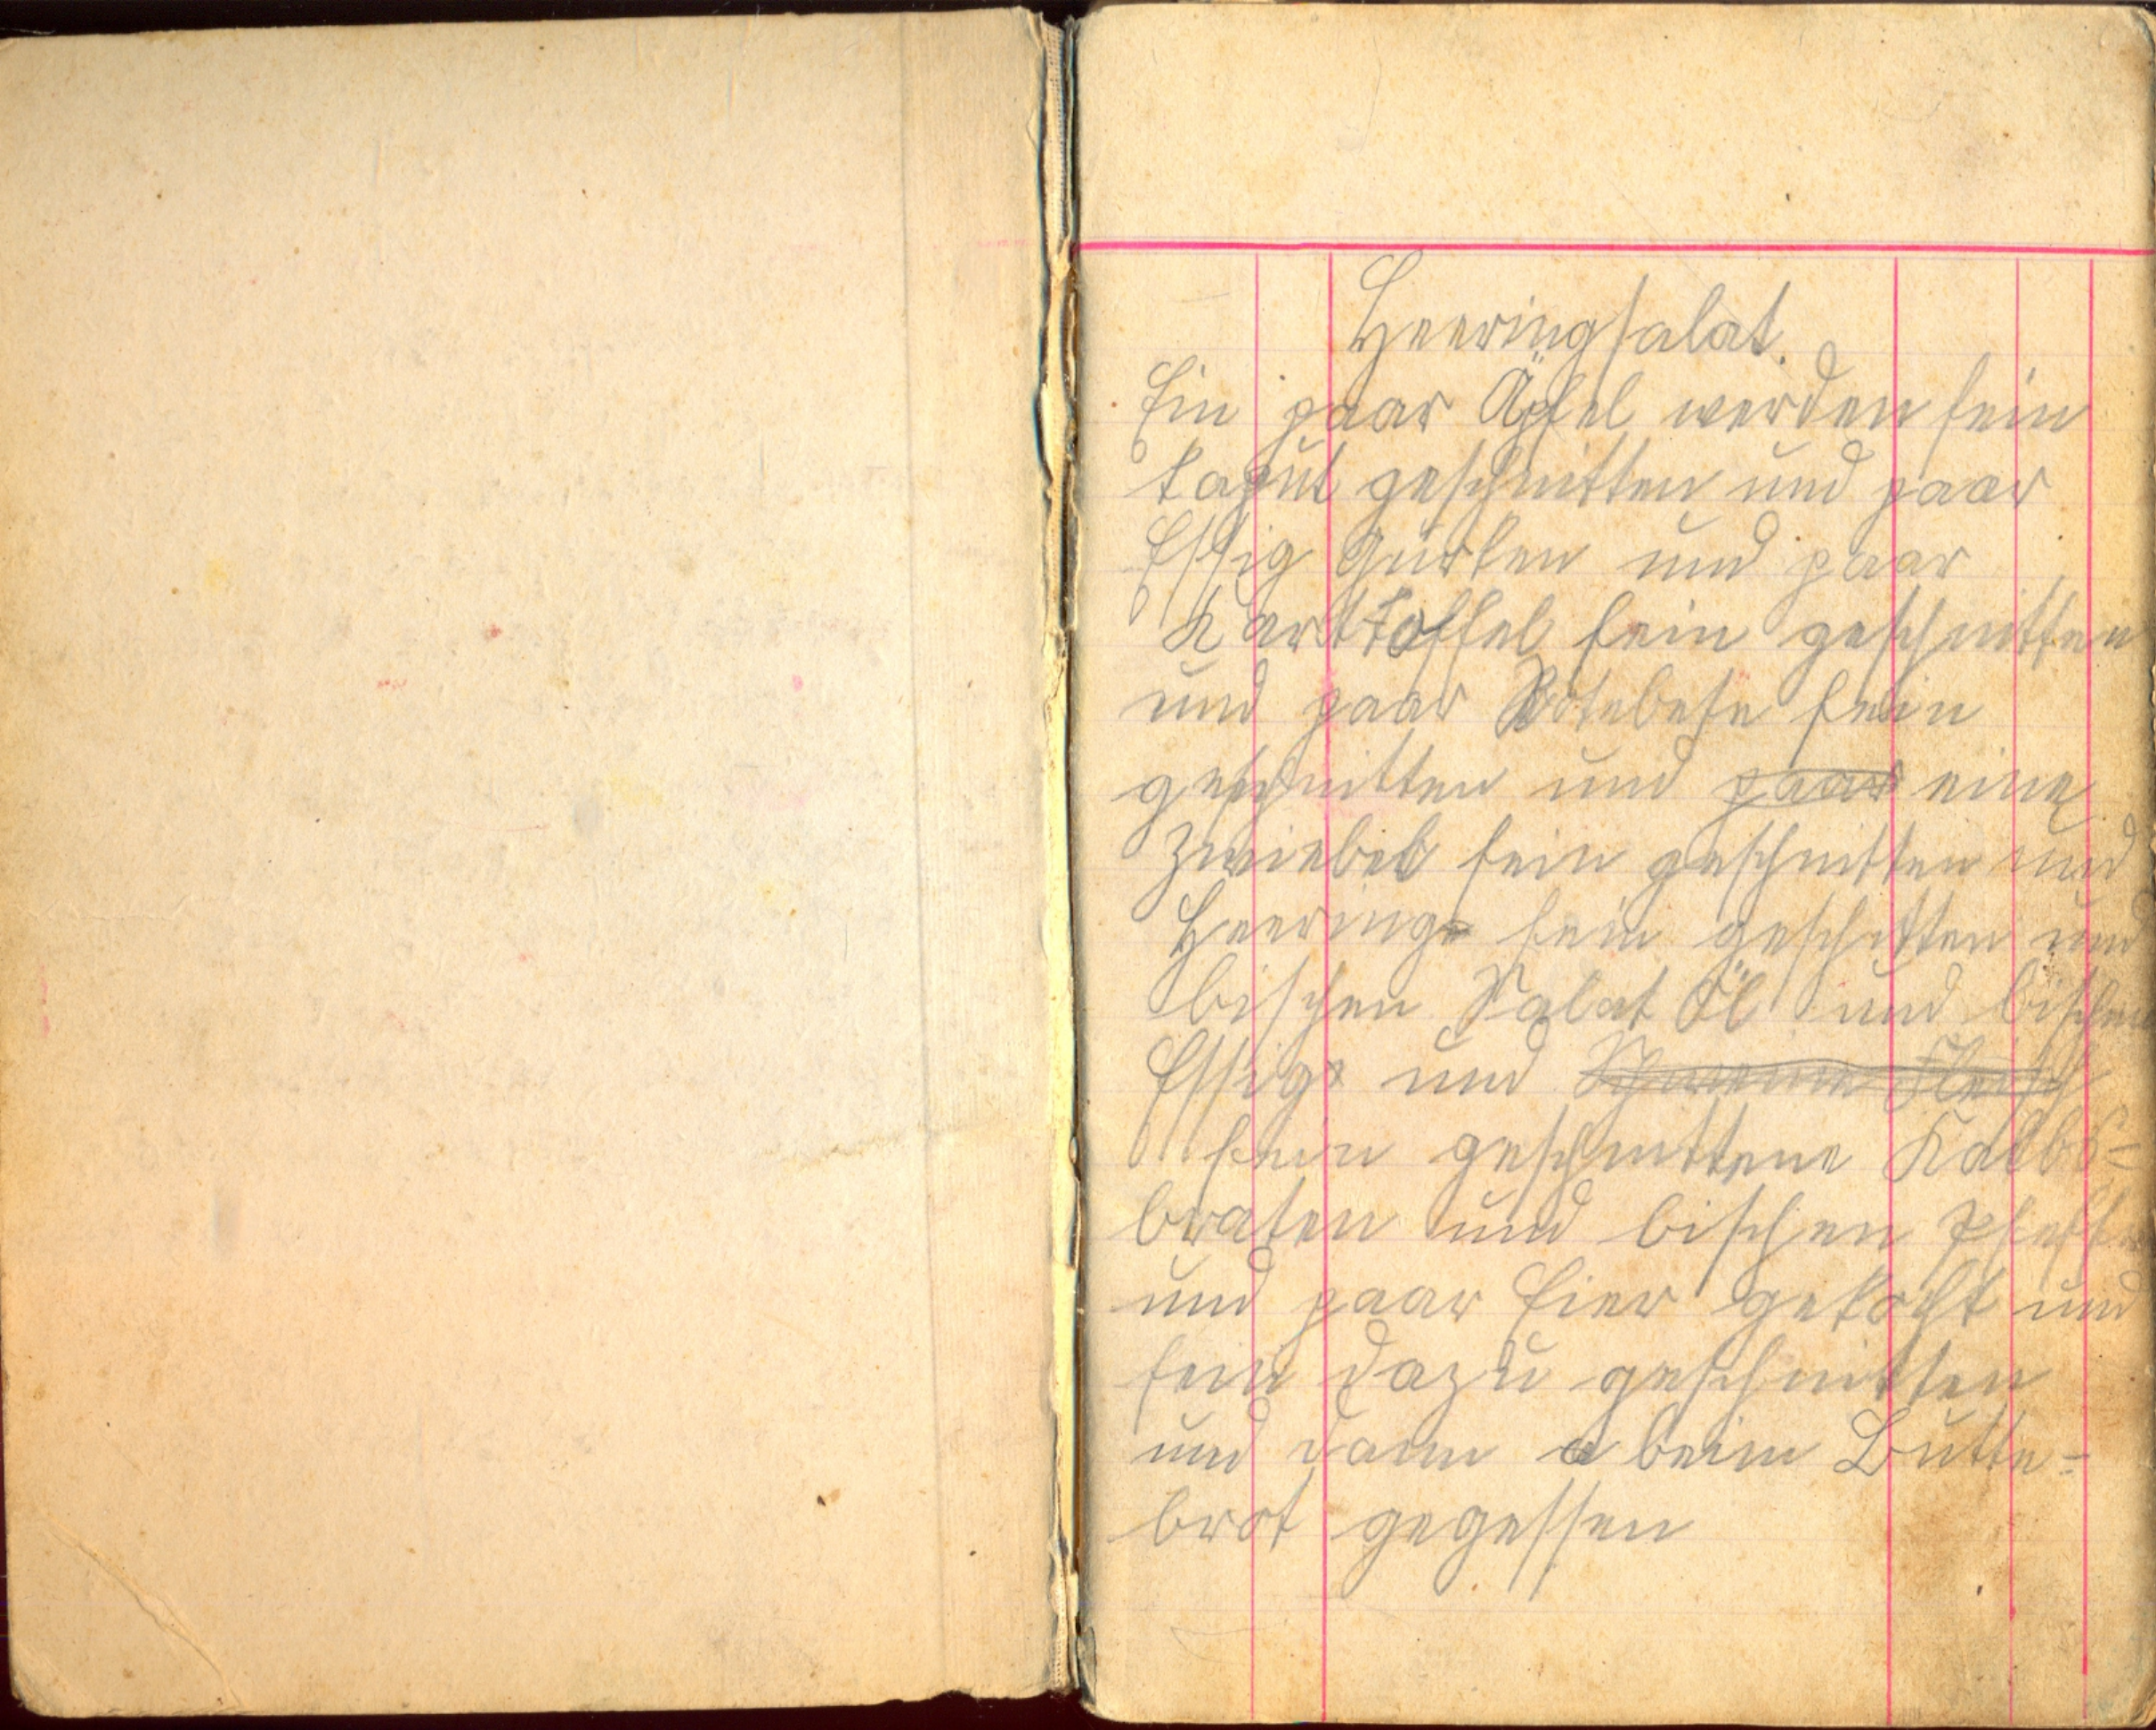 Heeringsalat.
Ein paar Äpfel werden fein
kaput geschnitten und paar
Essig Gurken und paar
Karttoffel fein geschnitten
und paar Rotebete fein
geschnitten und paar eine
Zwiebel fein geschnitten und
Heering fein geschitten und
bischen Salat Öl und bischen
Essig und Fleisch
fein geschnittene Kalbs=
braten und bischen Pfeffer
und paar Eier gekocht und
fein dazu geschnitten
und dann beim Butte=
brot gegessen